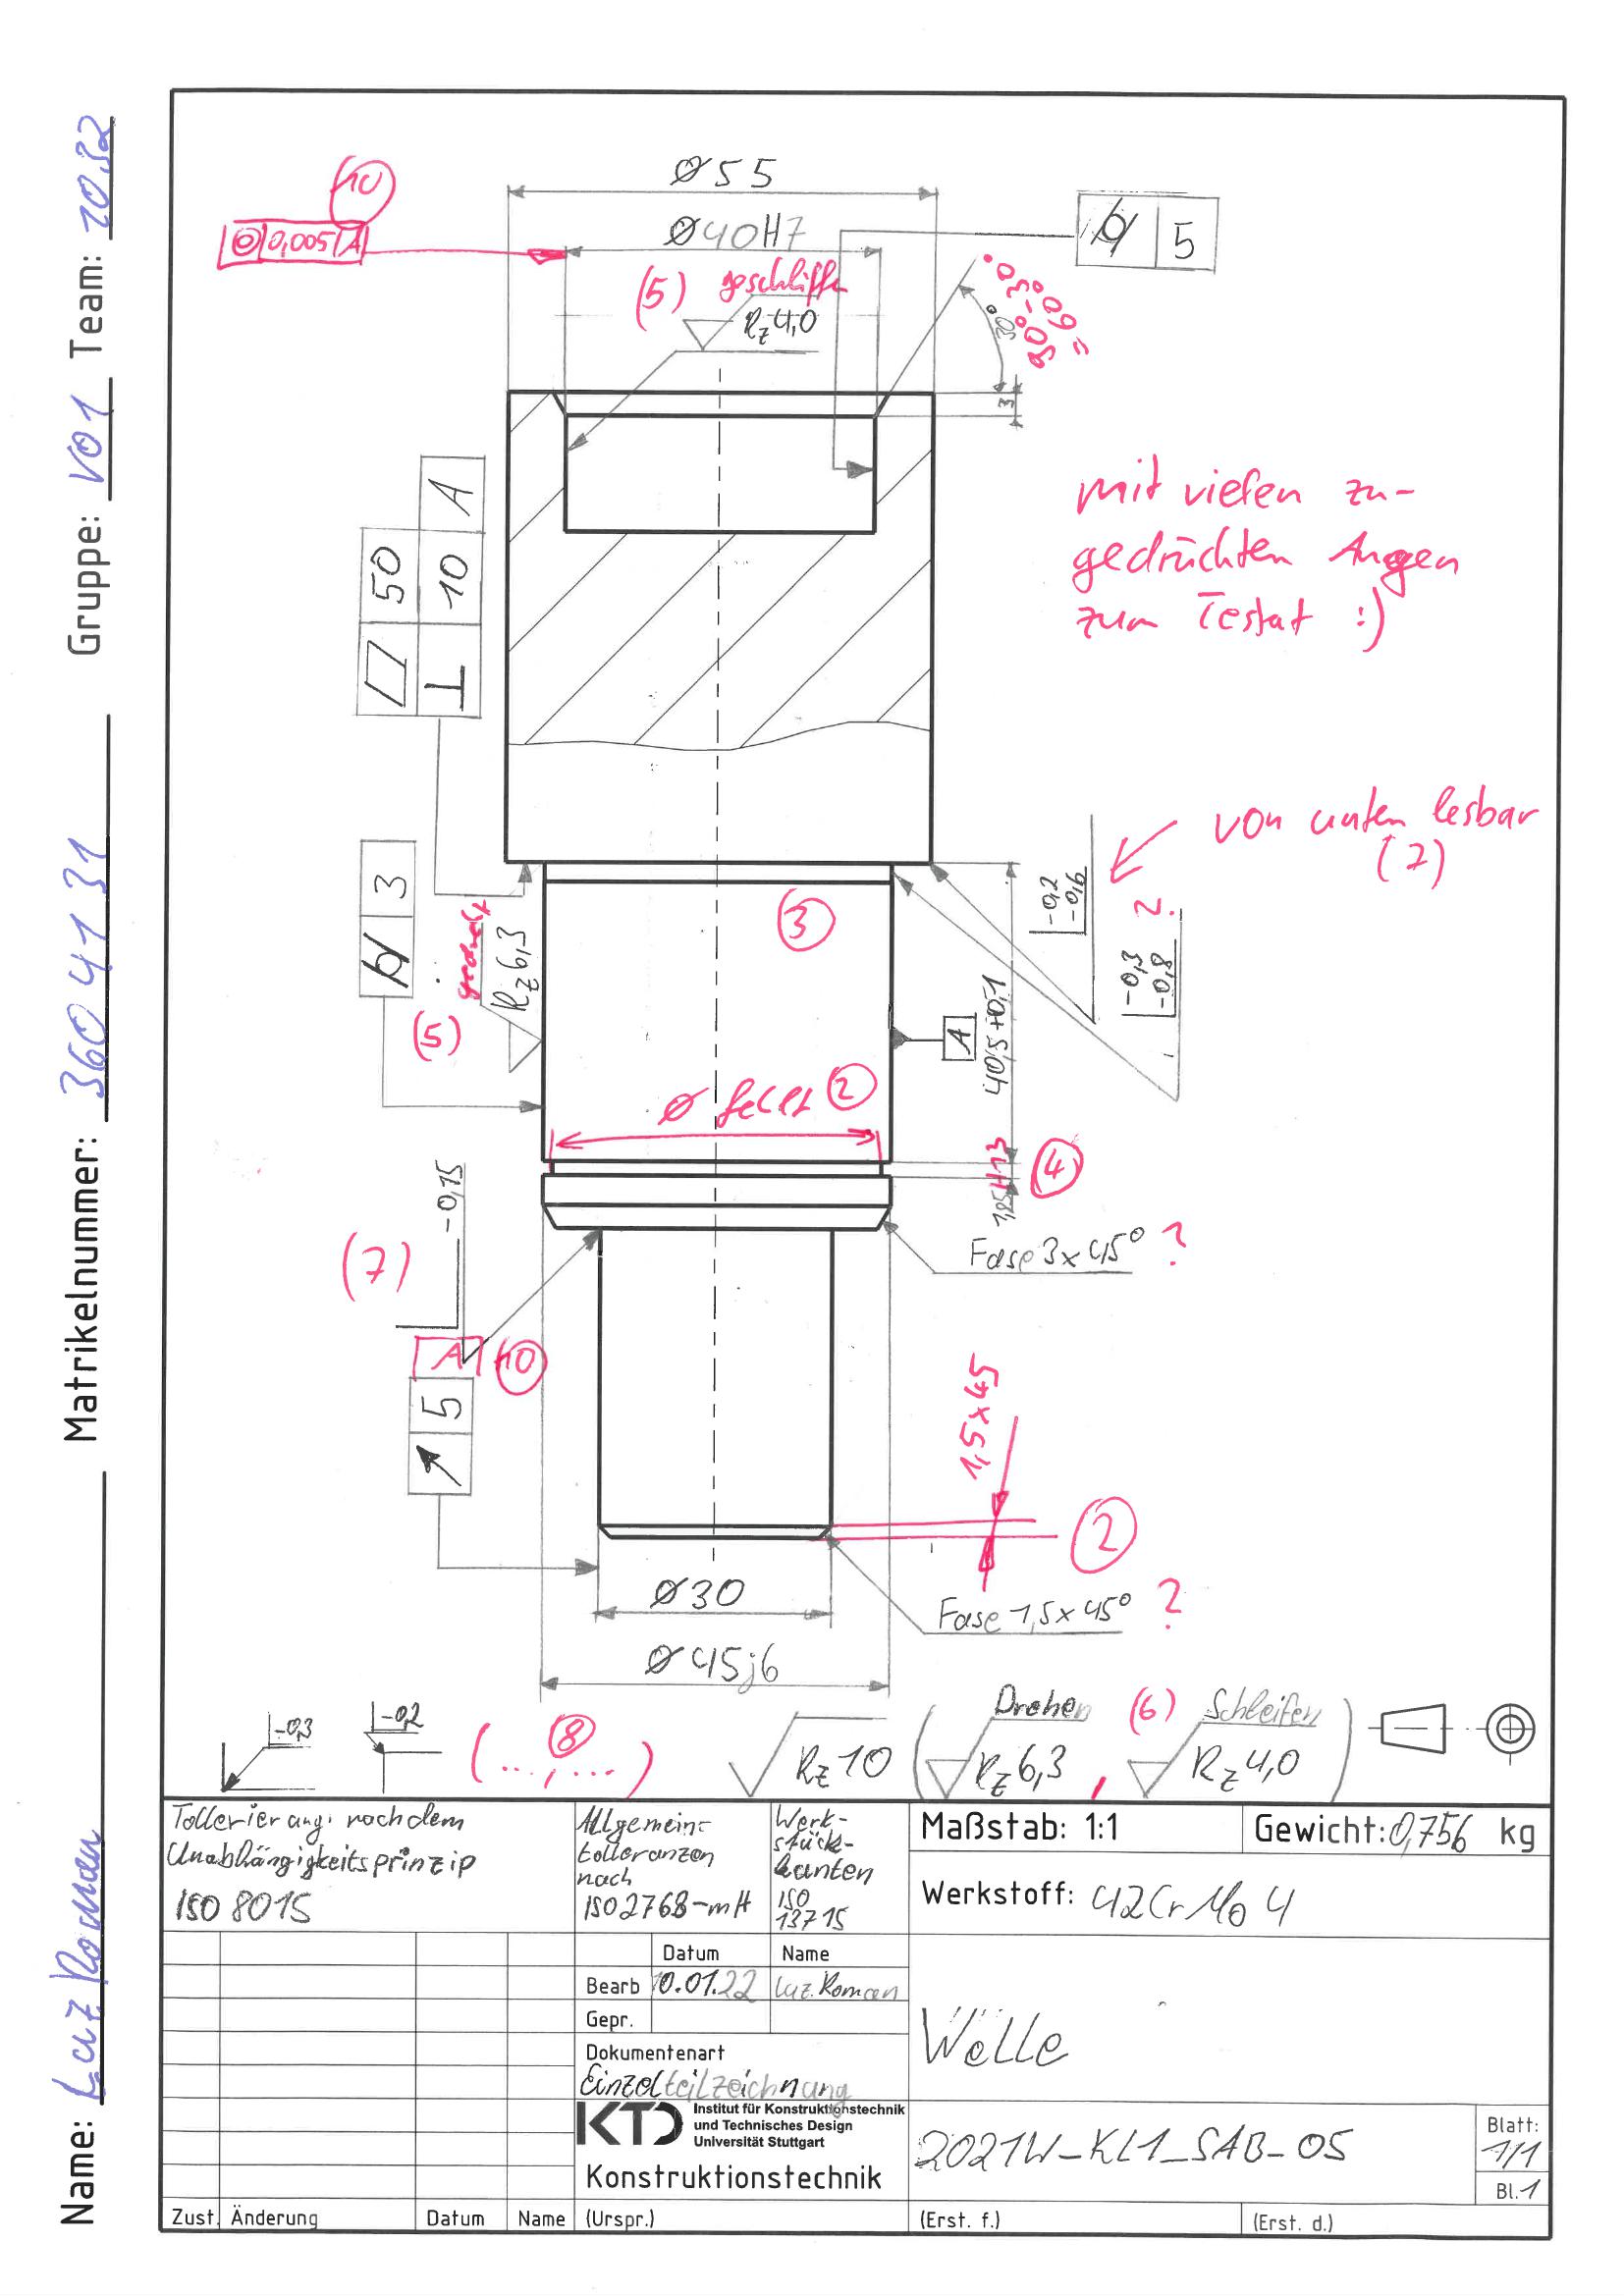 Name: Luz Roman Matrikelnummer: 3604131 Gruppe: V01 Team: 10.32
Ø55
10
◎ 0,005 A
Ø40H7
5
(5) geschliffen
Rz4,0
30°
90°-30°
= 60°
3
mit vielen zu-
gedrückten Augen
zum Testat :)
50
10 A
3
gedreht
Rz6,3
(5)
3
von unten lesbar
(7)
-0,2
-0,6
?
-0,3
-0,8
A
40,5+0,1
Ø fehlt 2
H13
1,85
4
(7)
-0,15
Fase 3x45° ?
A 10
5
1,5 x 45
2
Ø30
Fase 1,5x45° ?
Ø45j6
-0,3
-0,2
(..., ...) 8
Rz10
Drehen
Rz6,3
,
(6)
Schleifen
Rz4,0
Tollerierung nach dem
Unabhängigkeitsprinzip
ISO 8015
Allgemein-
tolleranzen
nach
ISO2768-mH
Werk-
stück-
kanten
ISO
13715
Maßstab: 1:1
Gewicht: 0,756 kg
Werkstoff: 42CrMo4
Datum Name
Bearb 10.01.22 Luz.Roman
Gepr.
Dokumentenart
Einzelteilzeichnung
Welle
KTD Institut für Konstruktionstechnik
und Technisches Design
Universität Stuttgart
Konstruktionstechnik
2021W_KL1_SAB_05
Blatt:
1/1
Bl.1
Zust. Änderung Datum Name (Urspr.) (Erst. f.) (Erst. d.)